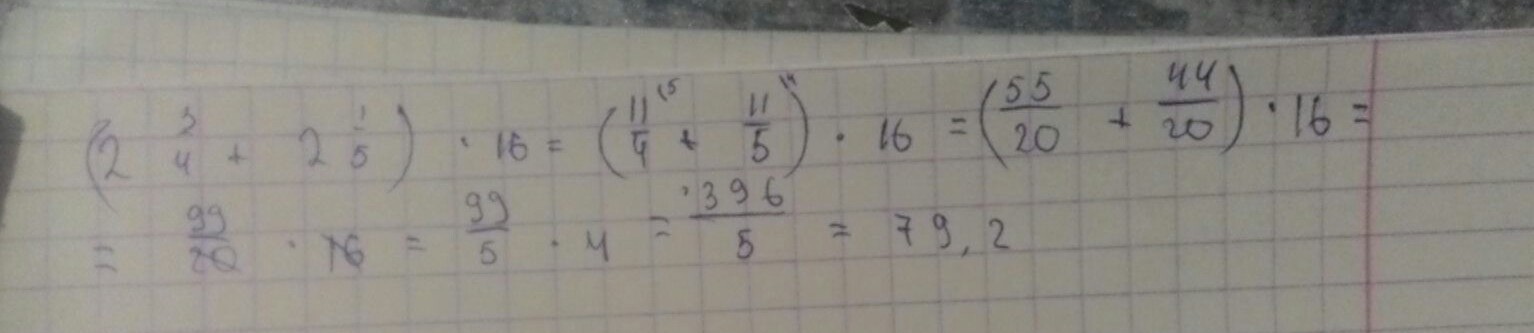 (2 3/4 + 2 1/5) · 16 = (11/4 ⁽⁵ + 11/5 ⁽⁴) · 16 = (55/20 + 44/20) · 16 =
= 99/20 · 16 = 99/5 · 4 = 396/5 = 79,2